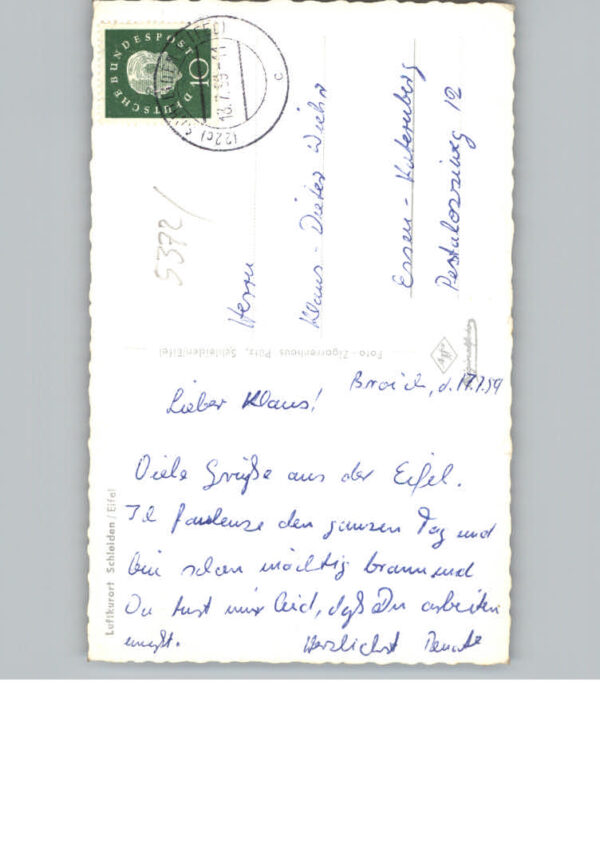 DEUTSCHE BUNDESPOST
10
(22c)
18.7.59-11
c
5372/
Herrn
Klaus-Dieter
Essen-Katernberg
Pestalozziweg 12
Foto-Zigarrenhaus Pütz, Schleiden/Eifel
Luftkurort Schleiden/Eifel
Broich, d. 17.7.59
Lieber Klaus!
Viele Grüße aus der Eifel.
Ich faulenze den ganzen Tag und
bin schon mächtig braun und
Du tust mir leid, daß Du arbeiten
mußt. Herzlichst Renate